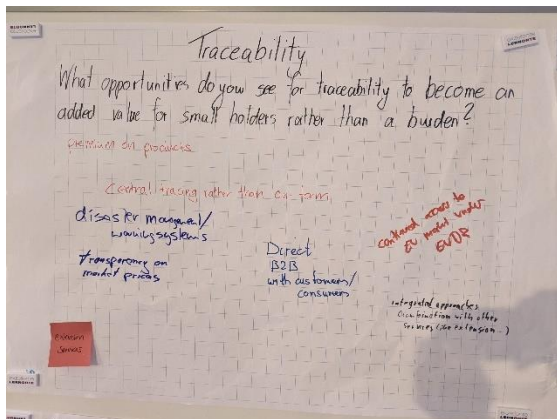 Traceability
What opportunities do you see for traceability to become an
added value for small holders rather than a burden?
premium on products
Central tracing rather than on farm
disaster management/
warning systems
transparency on
market prices
Direct
B2B
with customers/
consumers
continued access to
EU market under
EUDR
integrated approaches
Combination with other
services (like extension...)
Extension
Services